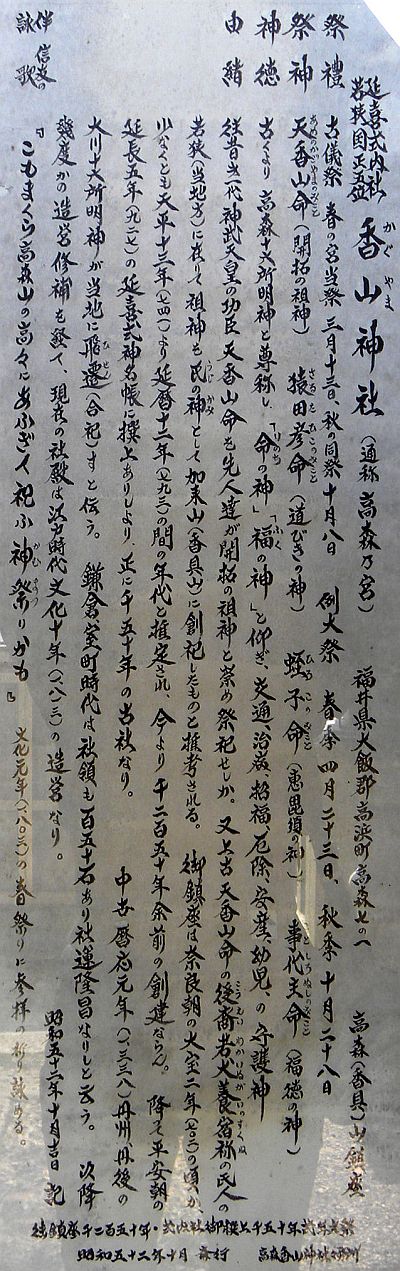 延喜式内社
若狭国正五位 香山神社（通称 高森乃宮） 福井県大飯郡高浜町高森七の一 高森（香具）山鎮座
かぐやま
祭禮 古儀祭 春の宮当祭 三月十三日、秋の同祭 十月八日 例大祭 春季 四月二十三日、秋季 十月二十八日
祭神 天香山命（開拓の祖神） 猿田彦命（道びきの神） 蛭子命（恵毘須の神） 事代主命（福徳の神）
神徳 古くより高森十二所明神と尊称し、「命の神」「福の神」と仰ぎ、交通、治病、招福、厄除、安産、幼児、の守護神
由緒 往昔一代神武天皇の功臣 天香山命を先人達が開拓の祖神と崇め祭祀せしか。又上古天香山命の後裔若犬養宿祢の氏人の
若狭（当地方）に在りて祖神を氏神として加来山（香具山）に創祀したものと推考される。 御鎮座は奈良朝の大宝二年（七〇二）の頃か、
少なくとも天平十三年（七四一）より延暦十二年（七九三）の間の年代と推定され、今より千二百五十年余前の創建ならん。 降て平安朝の
延長五年（九二七）の延喜式神名帳に撰上ありしより、正に千五十年の古社なり。 中古暦応元年（一、三三八）丹州、丹後の
大川十二所明神が当地に飛遷（合祀）すと伝う。 鎌倉室町時代は社領も百五十石あり社運隆昌なりしと云う。 以降
幾度かの造営修補を経て、現在の社殿は江戸時代 文化十年（一、八一三）の造営なり。 昭和五十二年十月吉日 記
伴信友の詠歌 『こもまくら高森山の高々にあふぎて祝ふ神祭りかも』 文化元年（一、八〇三）の春祭りに参拝の折り詠める。
御鎮座千二百五十年・式内社御撰上千五十年式年大祭
昭和五十二年十月 斎行 高森香山神社々務所